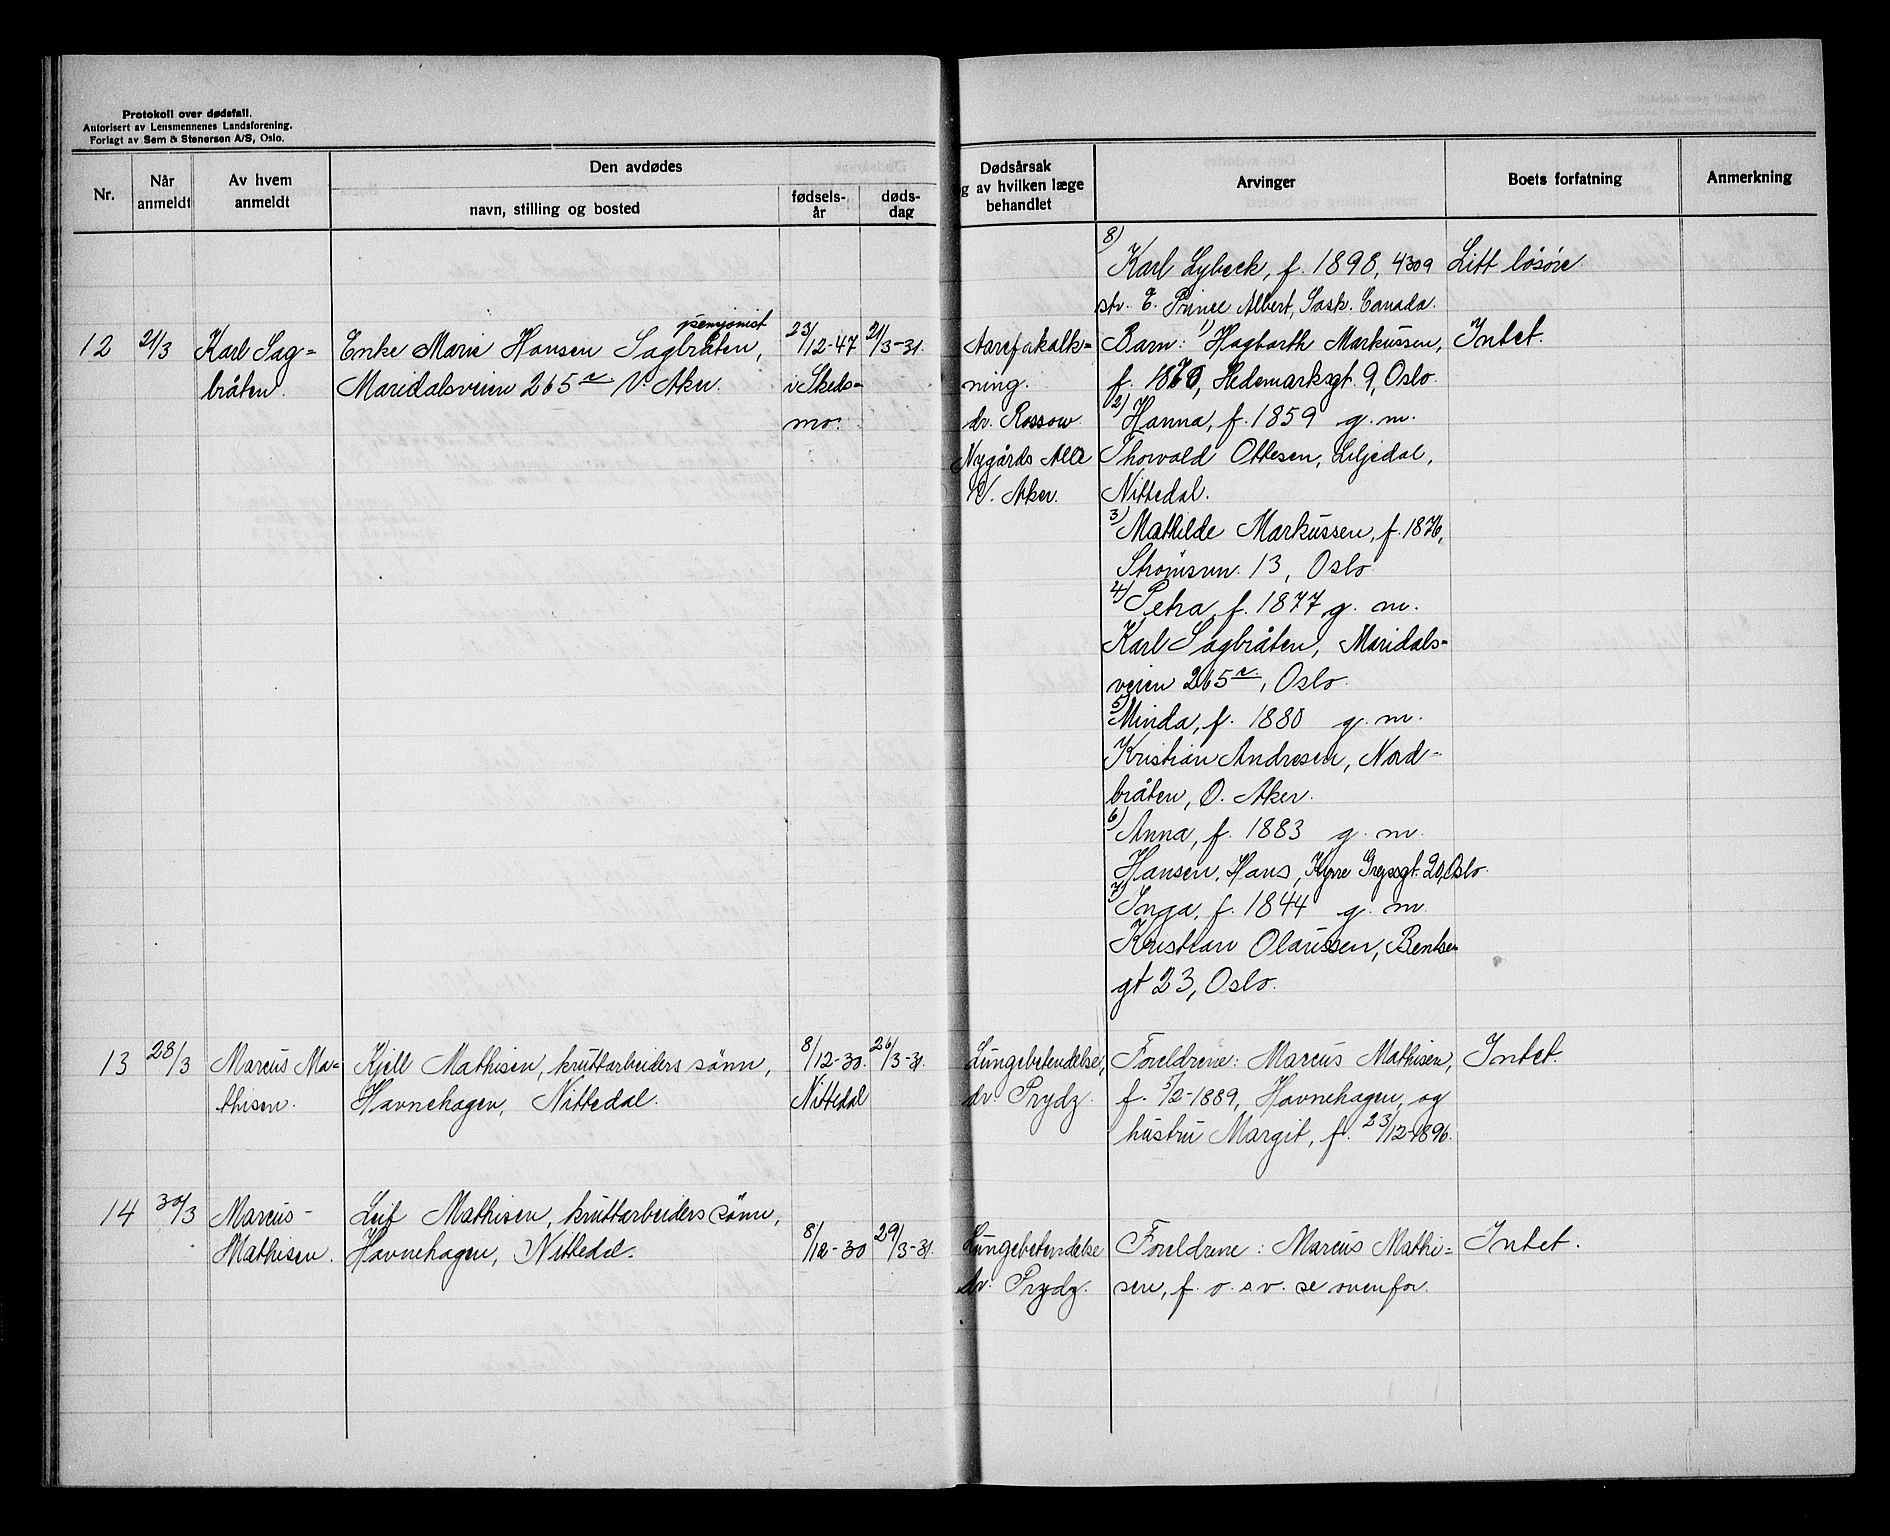 Protokoll over dødsfall.
Autorisert av Lensmennenes Landsforening.
Forlagt av Sem & Stenersen A/S, Oslo.
Nr.
Når
anmeldt
Av hvem
anmeldt
Den avdødes
navn, stilling og bosted
fødsels-
år
døds-
dag
Dødsårsak
og av hvilken læge
behandlet
Arvinger
Boets forfatning
Anmerkning
8) Karl Lybeck, f. 1898, 4309
str. E. Prince Albert, Sask. Canada.
Litt løsøre
12
21/3
Karl Sag=
bråten.
pensjonist
Enke Marie Hansen Sagbråten,
Maridalsveien 265 c V. Aker.
23/12-47
i Skeds=
mo.
21/3-31.
Aarefakalk=
ning.
dr. Rossow
Nygårds Alle
V. Aker.
Barn: 1) Hagbarth Markussen,
f. 1870, Hedemarksgt. 9, Oslo.
2) Hanna, f. 1859 g. m.
Thorvald Ottesen, Liljedal,
Nittedal.
3) Mathilde Markussen, f. 1876,
Strømsvn. 13, Oslo
4) Petra, f. 1877 g. m.
Karl Sagbråten, Maridals=
veien 265 c., Oslo.
5) Minda, f. 1880 g. m.
Kristian Andresen, Nord=
bråten, Ø. Aker.
6) Anna, f. 1883 g. m.
Hansen, Hans, Kyrre Greppsgt. 20, Oslo.
7) Inga, f. 1844 g. m
Kristian Olaussen, Bentse
gt 23, Oslo.
Intet.
13
28/3
Marcus Ma=
thisen.
Kjell Mathisen, kruttarbeiders sønn,
Havnehagen, Nittedal.
8/12-30.
Nittedal
26/3-31.
Lungebetendelse,
dr. Prydz.
Foreldrene: Marcus Mathisen,
f. 5/2-1889, Havnehagen, og
hustru Margit, f. 23/12-1896.
Intet.
14
30/3
Marcus
Mathisen.
Leif Mathisen, kruttarbeiders sønn,
Havnehagen, Nittedal.
8/12-30
29/3-31.
Lungebetendelse
dr. Prydz.
Foreldrene: Marcus Mathi=
sen, f. o. s. v. se ovenfor.
Intet.